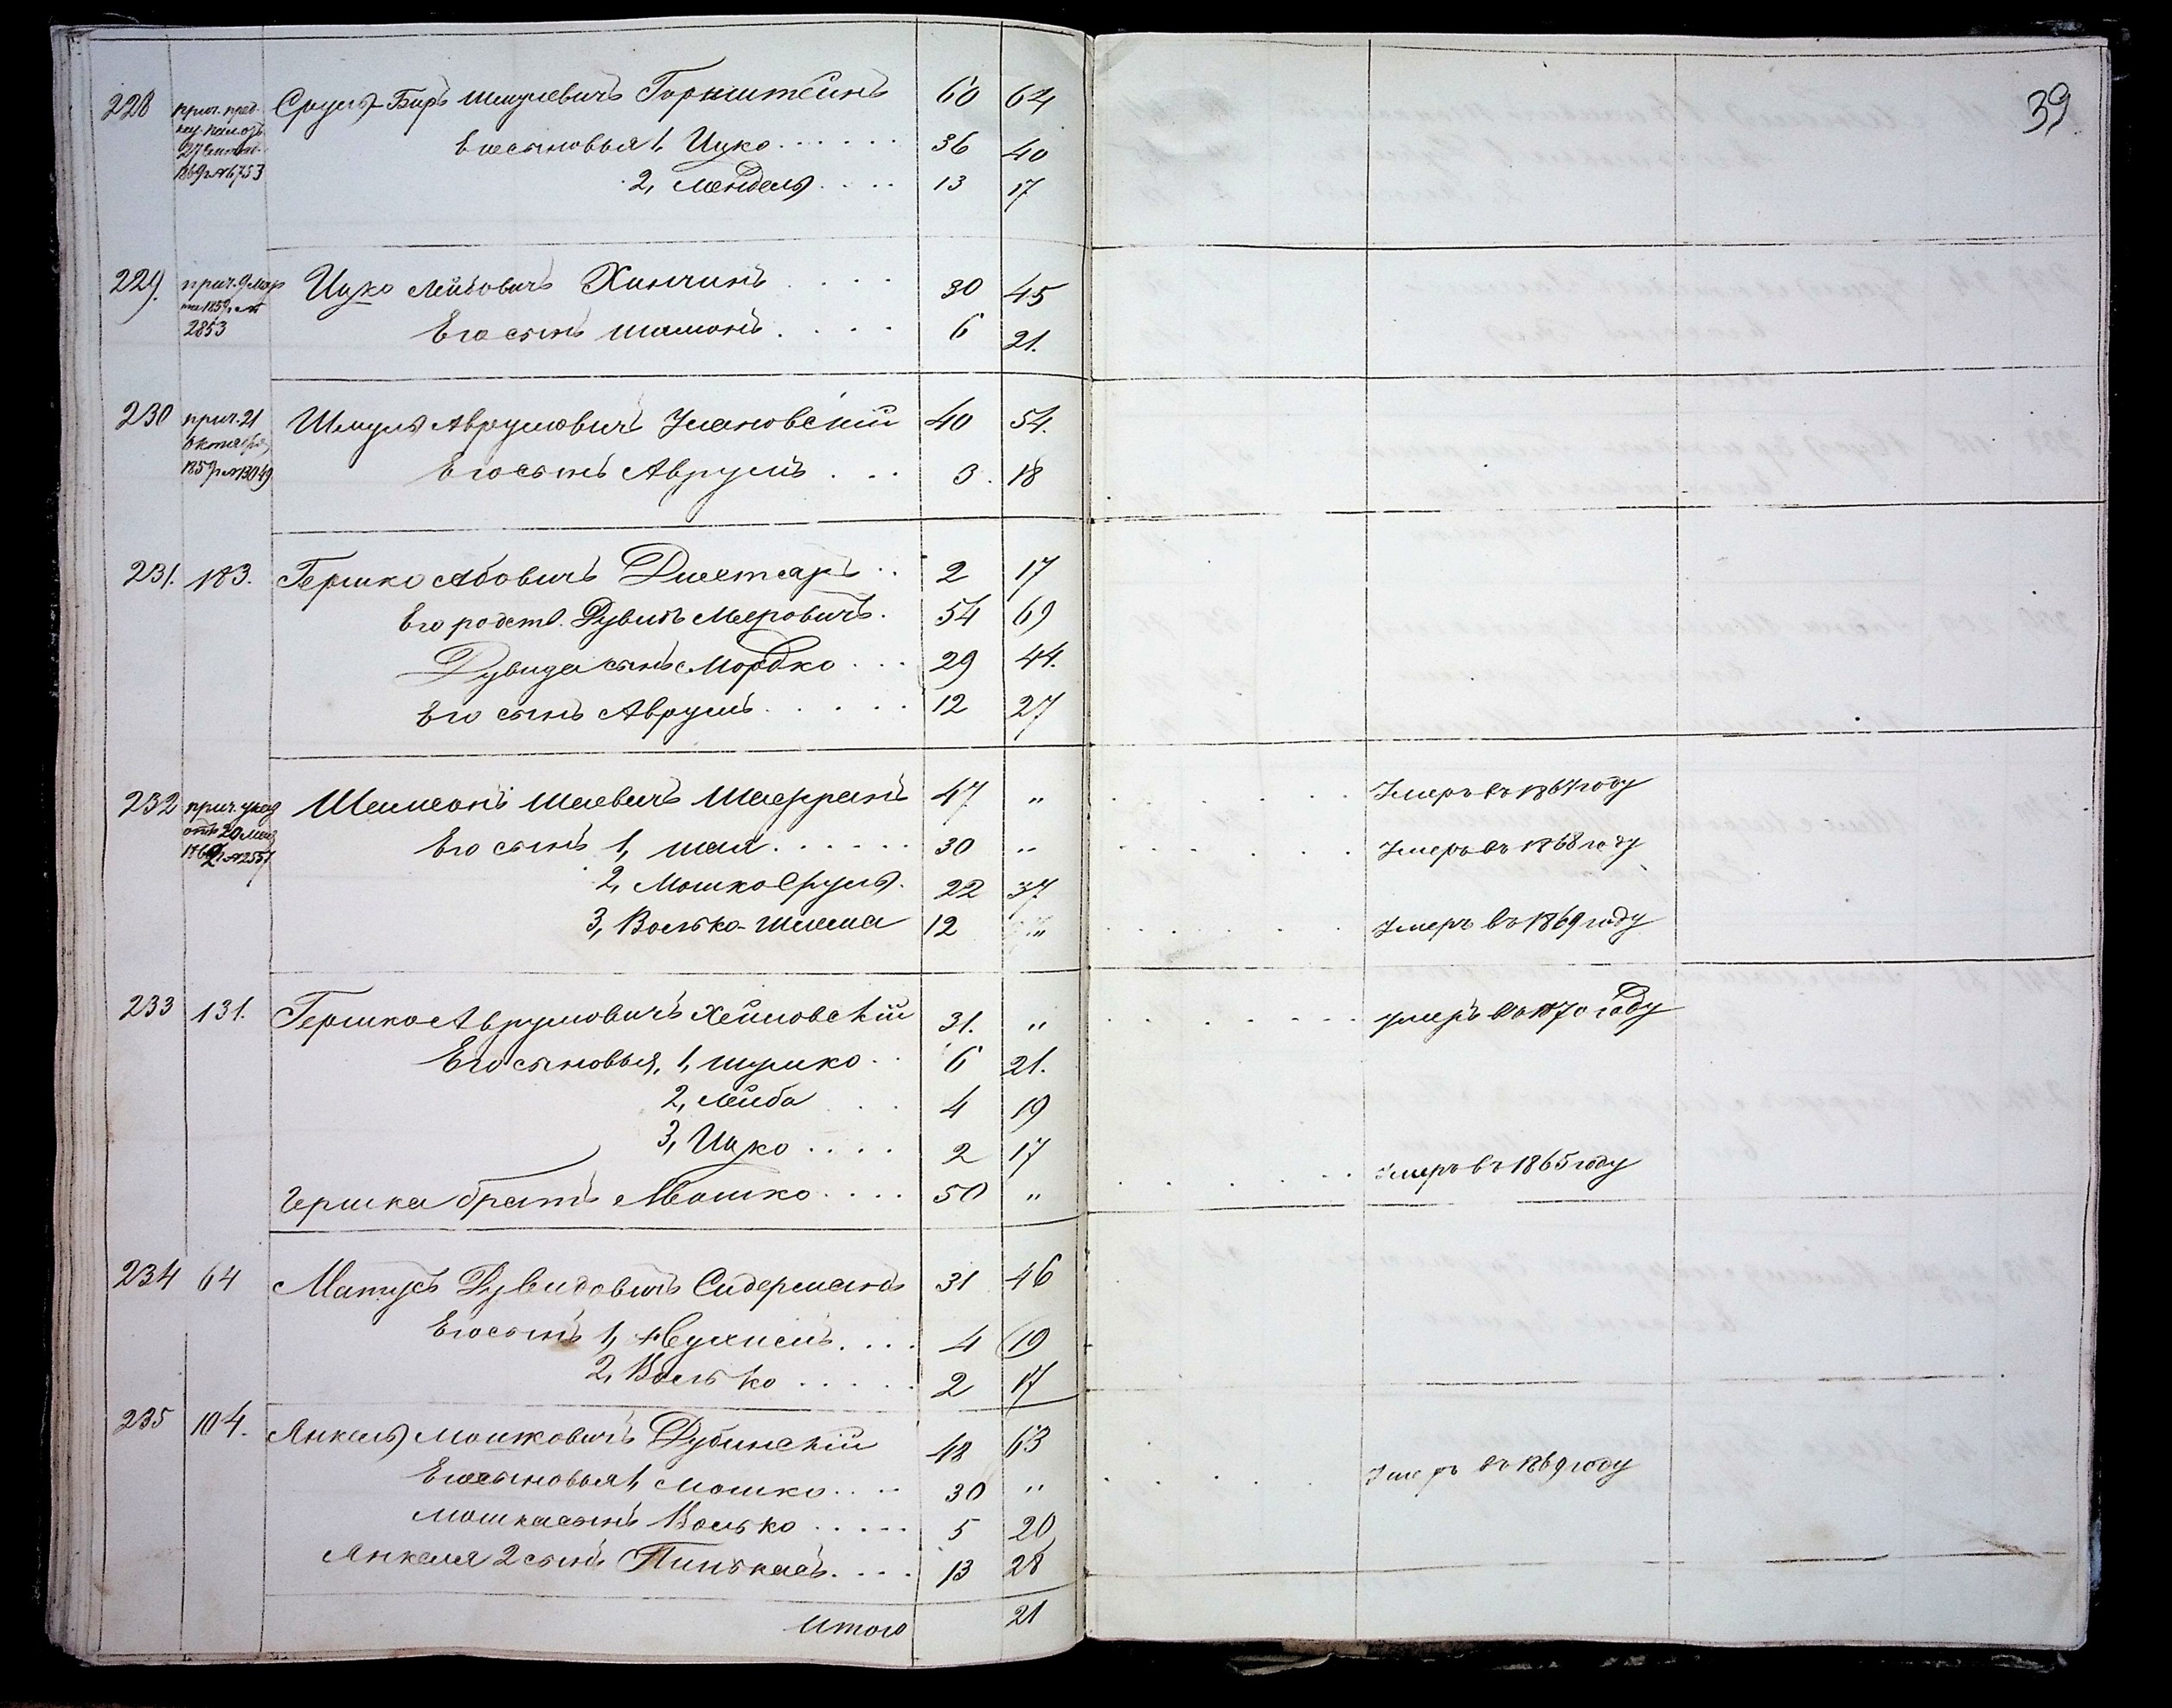 39
228 прич. пред. каз. палаты 27 Сентяб. 1869 г. № 6753 Сруль-Беръ Шмулевичъ Горнштейнъ 60 64
Его сыновья 1, Ицко 36 40
2, Мендель 13 17
229. прич. 9 Марта 1859 г. № 2853 Ицко Лейбовичъ Хинчинъ 30 45
Его сынъ Шимонъ 6 21.
230 прич. 21 Октября 1859 г. № 13049 Шмуль Аврумовичъ Улановскій 40 54.
Его сынъ Аврумъ 3. 18
231. 183. Гершко Абовичъ 2 17
Его родств. Дувидъ Мееровичъ. 54 69
Дувида сынъ Мордко 29 44.
Его сынъ Аврумъ 12 27
232 прич. указ. отъ 20 1862 г. № 2557 Шимонъ Шаевичъ 47 " Умеръ въ 1861 году
Его сынъ 1, Шая 30 " Умеръ въ 1868 году
2, Мошко Сруль. 22 37
3, Волько-Шлема 12 " Умеръ въ 1869 году
233 131. Гершко Аврумовичъ Хеймовскій 31. " умеръ въ 1870 году
Его сыновья, 1, Шулико 6 21.
2, Лейба 4 19
3, Ицко 2 17
Гершка братъ Мошко 50 " Умеръ въ 1865 году
234 64 Матусъ Дувидовичъ Сидерманъ 31 46
Его сынъ 1, 4 19
2, Волько 2 17
235 104. Янкель Мошковичъ Дубинскій 48 63
Его сыновья 1, Мошко 30 " Умеръ въ 1869 году
Мошка сынъ Волько 5 20
Янкеля 2 сынъ Пинькасъ 13 28
Итого 21